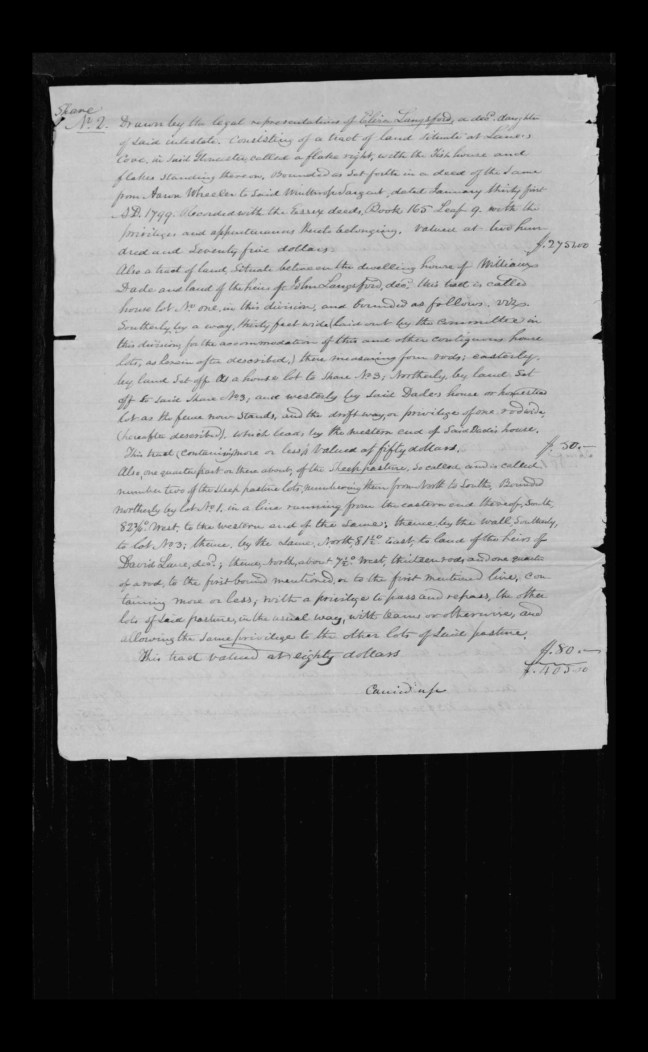 Share
No. 2. Drawn by the legal representatives of Langsford, a decd. daughter
of said intestate. Consisting of a tract of land situate at Lane's
Cove, in said Gloucester, called a flake right, with the Fish house and
flakes standing thereon, Bounded as set forth in a deed of the same
from Aaron Wheeler to said Winthrop Sargent, dated January thirty first
A.D. 1799. Recorded with the Essex deeds, Book 165 Leaf 9. with the
privileges and appurtenances thereto belonging. Valued at two hun
dred and seventy five dollars. $.275.00
Also a tract of land situate between the dwelling house of William
Dade and land of the heirs of John Langsford, decd. this last is called
house lot No. one, in this division, and bounded as follows. Viz
Southerly, by a way, thirty feet wide (laid out by the committee in
this division, for the accommodation of this and other contiguous house
lots, as herein after described,) there measuring four rods; easterly
by land set off as a house lot to share No. 3; Northerly by land set
off to said share No. 3; and westerly by said Dades house or
lot as the fence now stands, and the drift way, or privilege of one rod wide,
(hereafter described), which leads by the western end of said Dade's house.
This tract, containing more or less, is valued at fifty dollars. $. 50.-
Also, one quarter part or there about, of the sheep pasture, so called and is called
number two of the sheep pasture lots, numbering them from North to South, Bounded
northerly by lot No. 1. in a line running from the eastern end thereof, South
82¾° West, to the western end of the same; thence by the wall, Southerly,
to lot, No. 3; thence, by the same, North 81½° East, to land of the heirs of
David Lane, decd.; thence, North, about 7½° West, thirteen rods and one quarter
of a rod, to the first bound mentioned, or to the first mentioned line, con
taining more or less, with a privilege to pass and repass, the other
lots of said pasture, in the usual way, with teams or otherwise, and
allowing the same privilege to the other lots of said pasture.
This tract valued at eighty dollars $.80.-
$.405.00
Carried up